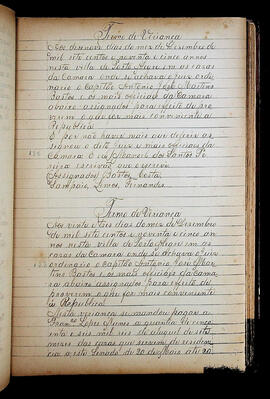 Termo de Veriança
Aos dennove dias do mez de Dezembro de
mil sete centos e noventa e cinco annos
nesta villa de Porto Alegre em as casas
da Camara onde se achava o juiz ordi-
nario o Capitão Antonio José Martins
Bastos e os mais officiaes da Camara
abaixo assignados para effeito de pro-
verem o que for mais conveniente a
Republica
E por não haver mais que deferir as-
signou o dito juiz e mais officiaes da
Camara. E eu
escrivão que o escrevi
Assignados Bastos, Costa,
Sampaio, Lemos, Fernandes
Termo de Veriança
Aos vinte e seis dias do mez de Dezembro
de mil sete centos e noventa e cinco an-
nos nesta villa de Porto Alegre em as
casas da Camara onde se achava o juiz
ordinario o Capitão Antonio José Mar-
tins Bastos e os mais officiaes da Cama-
ra abaixo assignados para effeito de
proverem o que for mais conveniente
a Republica
Nesta veriança se mandou pagar a
Franco Lopes Nunes a quantia de cinco-
enta e seis mil reis de aluguel de sete
mezes das casas que servem de residen-
cia a este Senado de 20 de Maio até 20